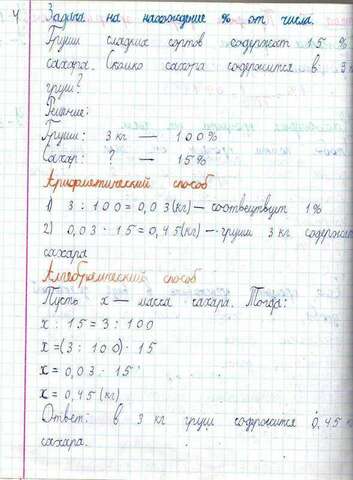 4 Задача на нахождение % от числа.
Груши сладких сортов содержат 15 %
сахара. Сколько сахара содержится в 3 к
груш?
Решение:
Груши: 3 кг — 100%
Сахар: ? — 15%
Арифметический способ
1) 3 : 100 = 0,03 (кг) — соответствует 1%
2) 0,03 · 15 = 0,45 (кг) — груши 3 кг содержат
сахара
Алгебраический способ
Пусть x — масса сахара. Тогда:
x : 15 = 3 : 100
x = (3 : 100) · 15
x = 0,03 · 15
x = 0,45 (кг)
Ответ: в 3 кг груш содержится 0,45 к
сахара.